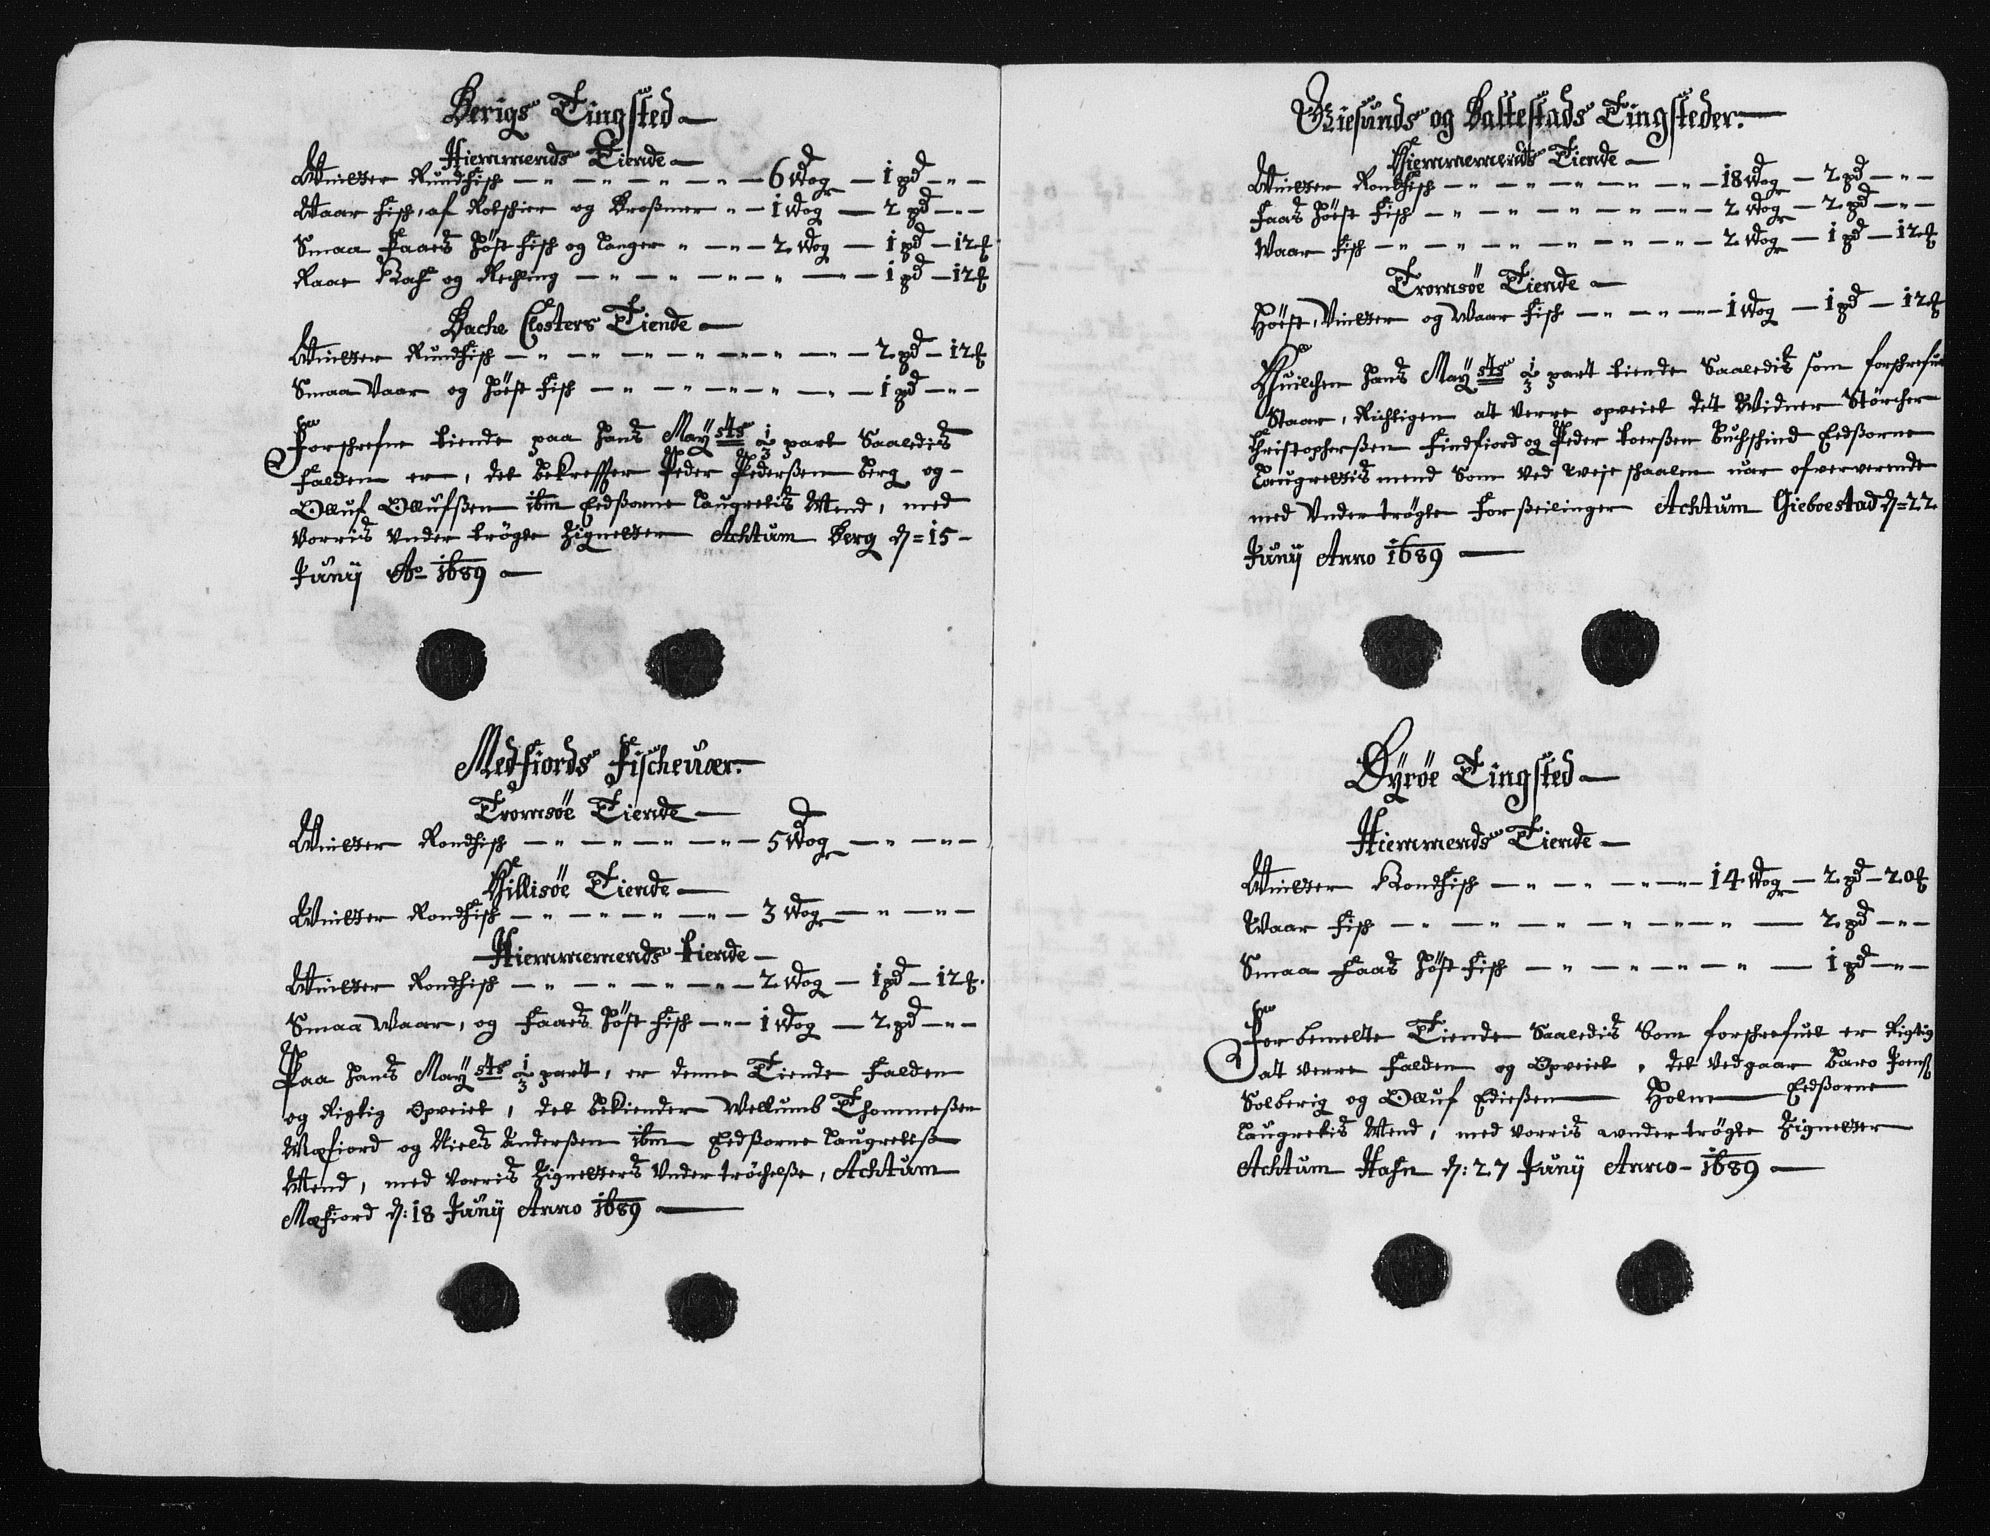 Berigs Tingsted
Hiemmends Tiende
Wintter Rundfisk — 6 Wog — 1 pd
Waar fisk, af Rotskier og Broßmer — 1 Wog — 2 pd
Smaa Faars Høst fisk og Langer — 2 Wog — 1 pd — 12 ₰
Raat Raf og Rechling — 1 pd — 12 ₰
Bache Closters Tiende
Wintter Rundfisk — 2 pd — 12 ₰
Smaa Vaar og Høest fisk — 1 pd
Forschrefne tiende paa Hans Maÿsts 1/3 part Saaledis
falden er, det bekreffter Peder Pederßen Berg og
Olluf Ollufßen ibm Eedßorne Laugrettis Mend, med
vorris under trøgte Zignetter Achtum Berg d = 15
Junij Ao 1689
Medfiords Fischeuær.
Tromsöe Tiende
Wintter Rondfisk — 5 Wog
Hillisöe Tiende
Wintter Rondfisk — 3 Wog
Hiemmemends tiende
Wintter Rondfisk — 2 Wog — 1 pd — 12 ₰.
Smaa Waar, og Faars Høst fisk — 1 Wog — 2 pd
Paa Hans Maÿsts 1/3 part, er denne Tiende Falden
og Rigtig Opveiet, det bekiender Vellumb Thommeßen
Mefiord og Niels Anderßen ibm Eedßorne Laugrettis
Mend, med vorris Zignetters Under trøchelße, Achtum
Mefiord d: 18 Junij Anno 1689
Giesunds og Baltestads Tingsteder.
Hiemmemends Tiende
Wintter Rondfisk — 18 Wog — 2 pd
Faars Høest Fisk — 2 Wog — 2 pd
Waar fisk — 2 Wog — 1 pd — 12 ₰
Tromsöe Tiende
Høest, Vintter og Waar Fisk — 1 Wog — 1 pd — 12 ₰
Huilchen Hans Maÿsts 1/3 part tiende Saaledis som forschrefuet
Staar, Richtigen at verre opveiet det Widner Störcher
Christopherßen Findfiord og Peder Toerßen Buchschind Eedßorne
Laugrettis mend Som ved Veje schaalen var ofververende
med Under trøgte Forßeilinger Achtum Gieboestad d = 22
Junij Anno 1689
Dyröe Tingsted
Hiemmends Tiende
Wintter Rondfisk — 14 Wog — 2 pd — 20 ₰
Waar Fisk — 2 pd
Smaa Faars Høst Fisk — 1 pd
For bemelte Tiende Saaledis Som forschrefuet er Rigtig
at verre Falden og Opveiet, det Vedgaar Baro Joenß
Solberig og Olluf Edißen Holm Eedßorne
Laugrettis Mend, med vorris under trøgte Zignetter
Achtum Hafn d: 27 Junij Anno 1689